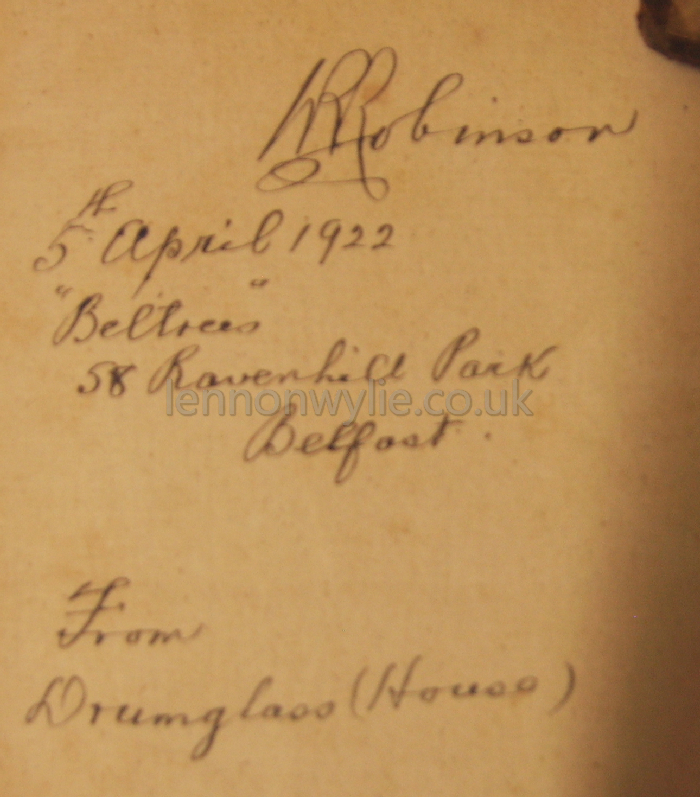 WRobinson
5th April 1922
"Beltrees"
58 Ravenhill Park
lennonwylie.co.uk
Belfast.
From
Drumglass (House)